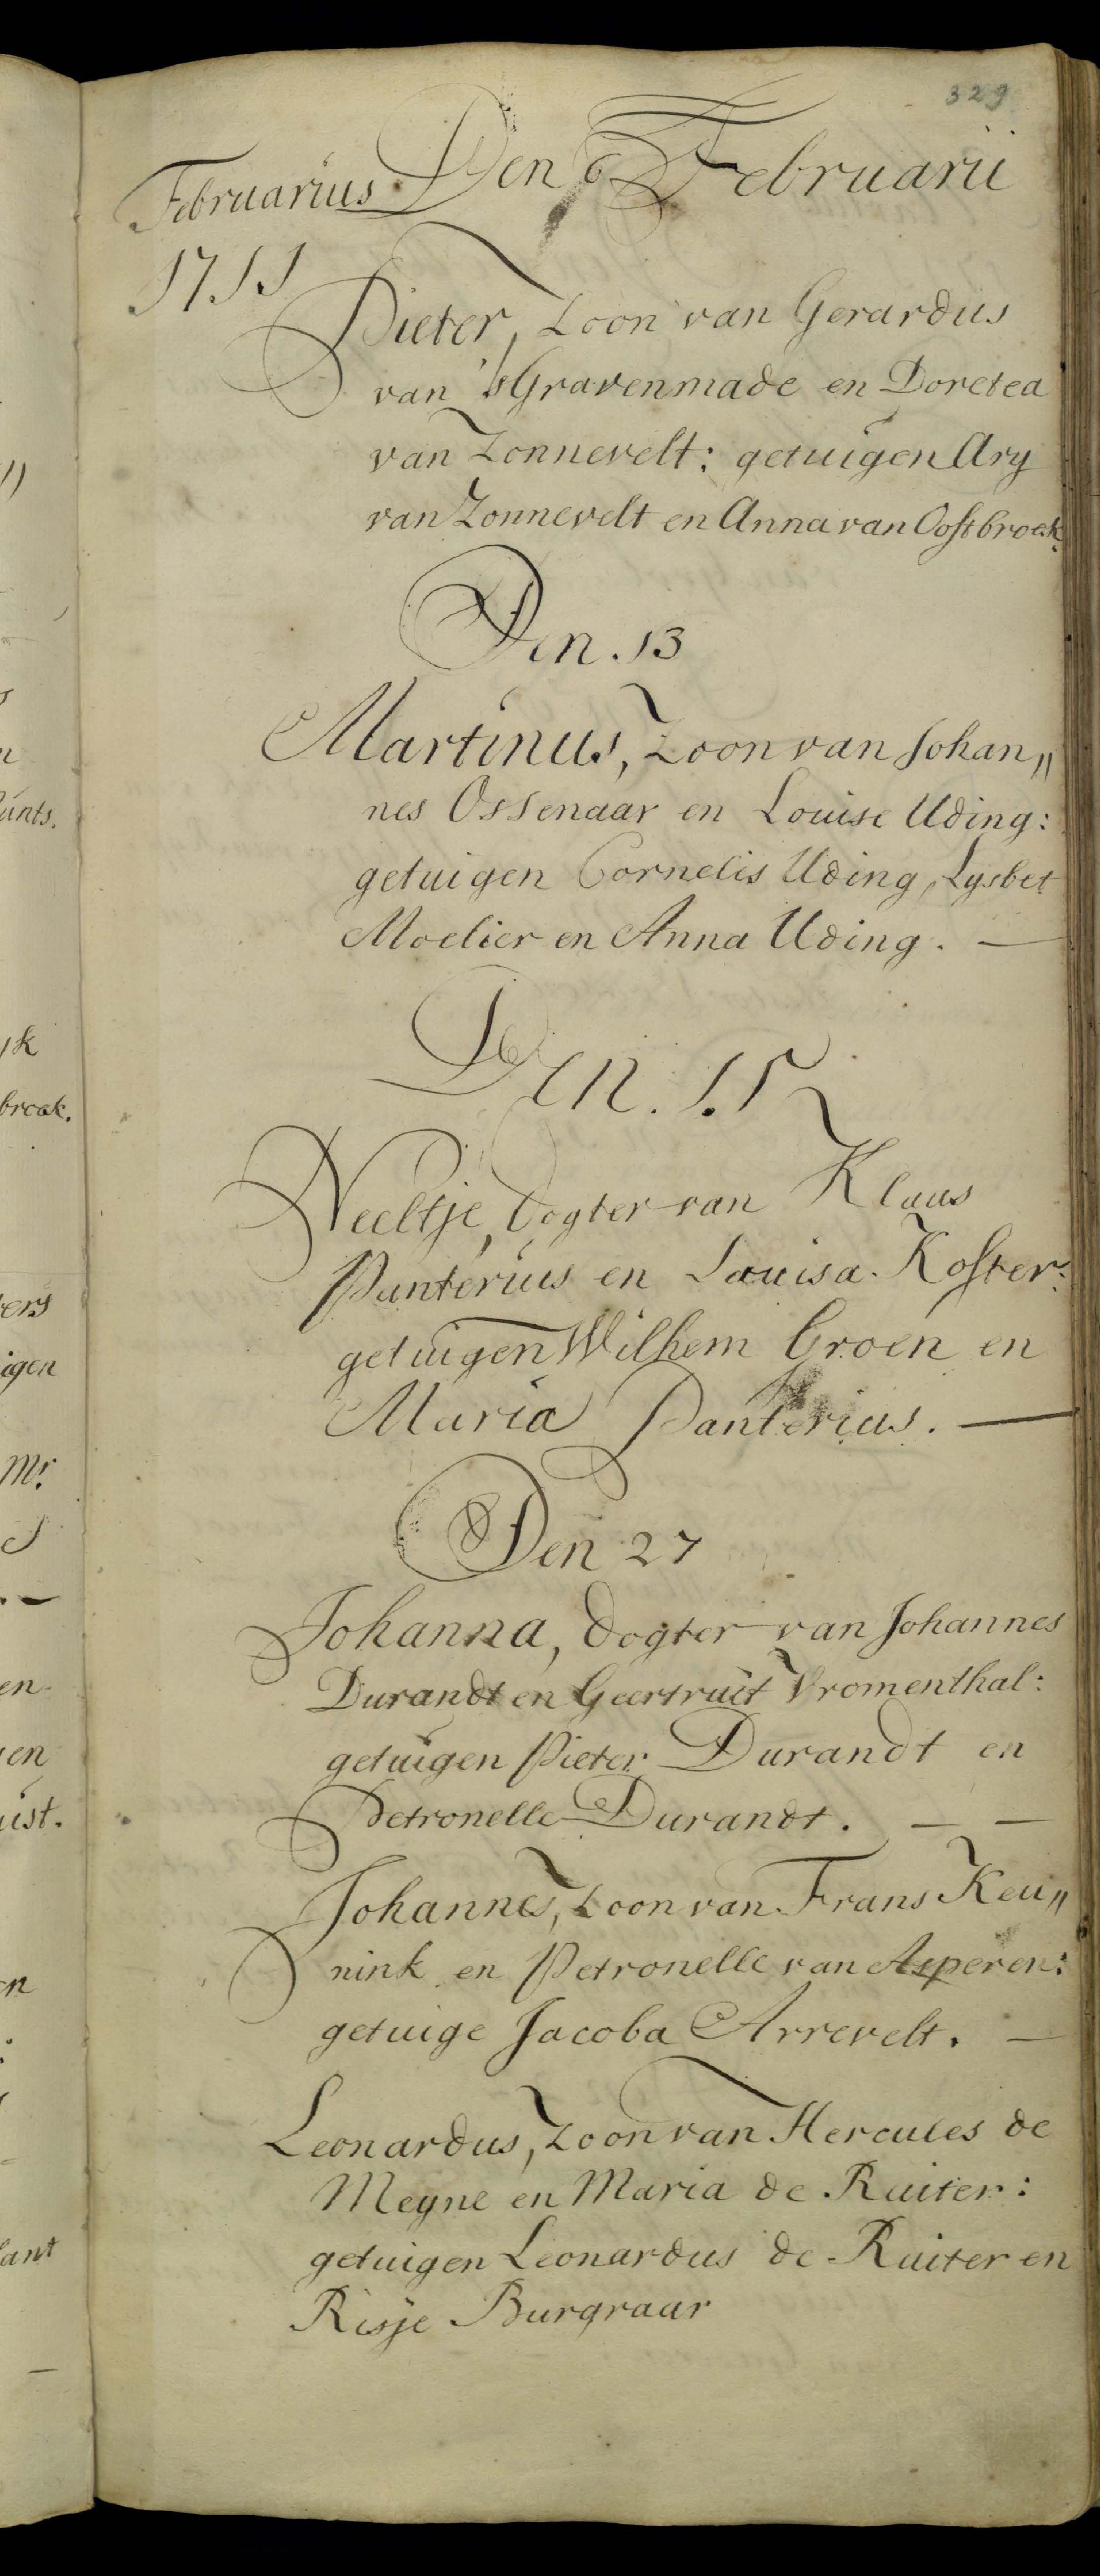 329
Den 6 Februarii
Februarius
1755
Pieter, Zoon van Gerardus
van 's Gravenmade en Doretea
van Zonnevelt: getuigen Ary
van Zonnevelt en Anna van Oostbroek.
Den. 13
Martinus, Zoon van Johan„
nes Ossenaar en Louise Uding:
getuigen Cornelis Uding, Lysbet
Moelier en Anna Uding. —
Den. 15
Neeltje, Dogter van Klaas
Panterius en Louisa Koster:
getuigen Wilhem Groen en
Maria Panterius. —
Den 27
Johanna, Dogter van Johannes
Durandt en Geertruit Vromenthal:
getuigen Pieter Durandt en
Petronelle Durandt. — —
Johannes, Zoon van Frans Keu„
nink en Petronelle van Asperen:
getuige Jacoba Arrevelt. —
Leonardus, Zoon van Hercules de
Meyne en Maria de Ruiter:
getuigen Leonardus de Ruiter en
Risje Burgraar